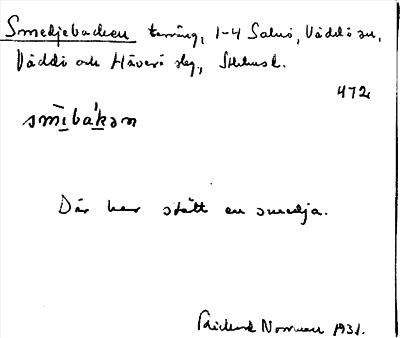 Smedjebacken terräng, 1-4 Salnö, Väddö sn,
Väddö och Häverö skg, Sthlmsl.
472
smìbákən
Där har stått en smedja.
Norrman 1931.